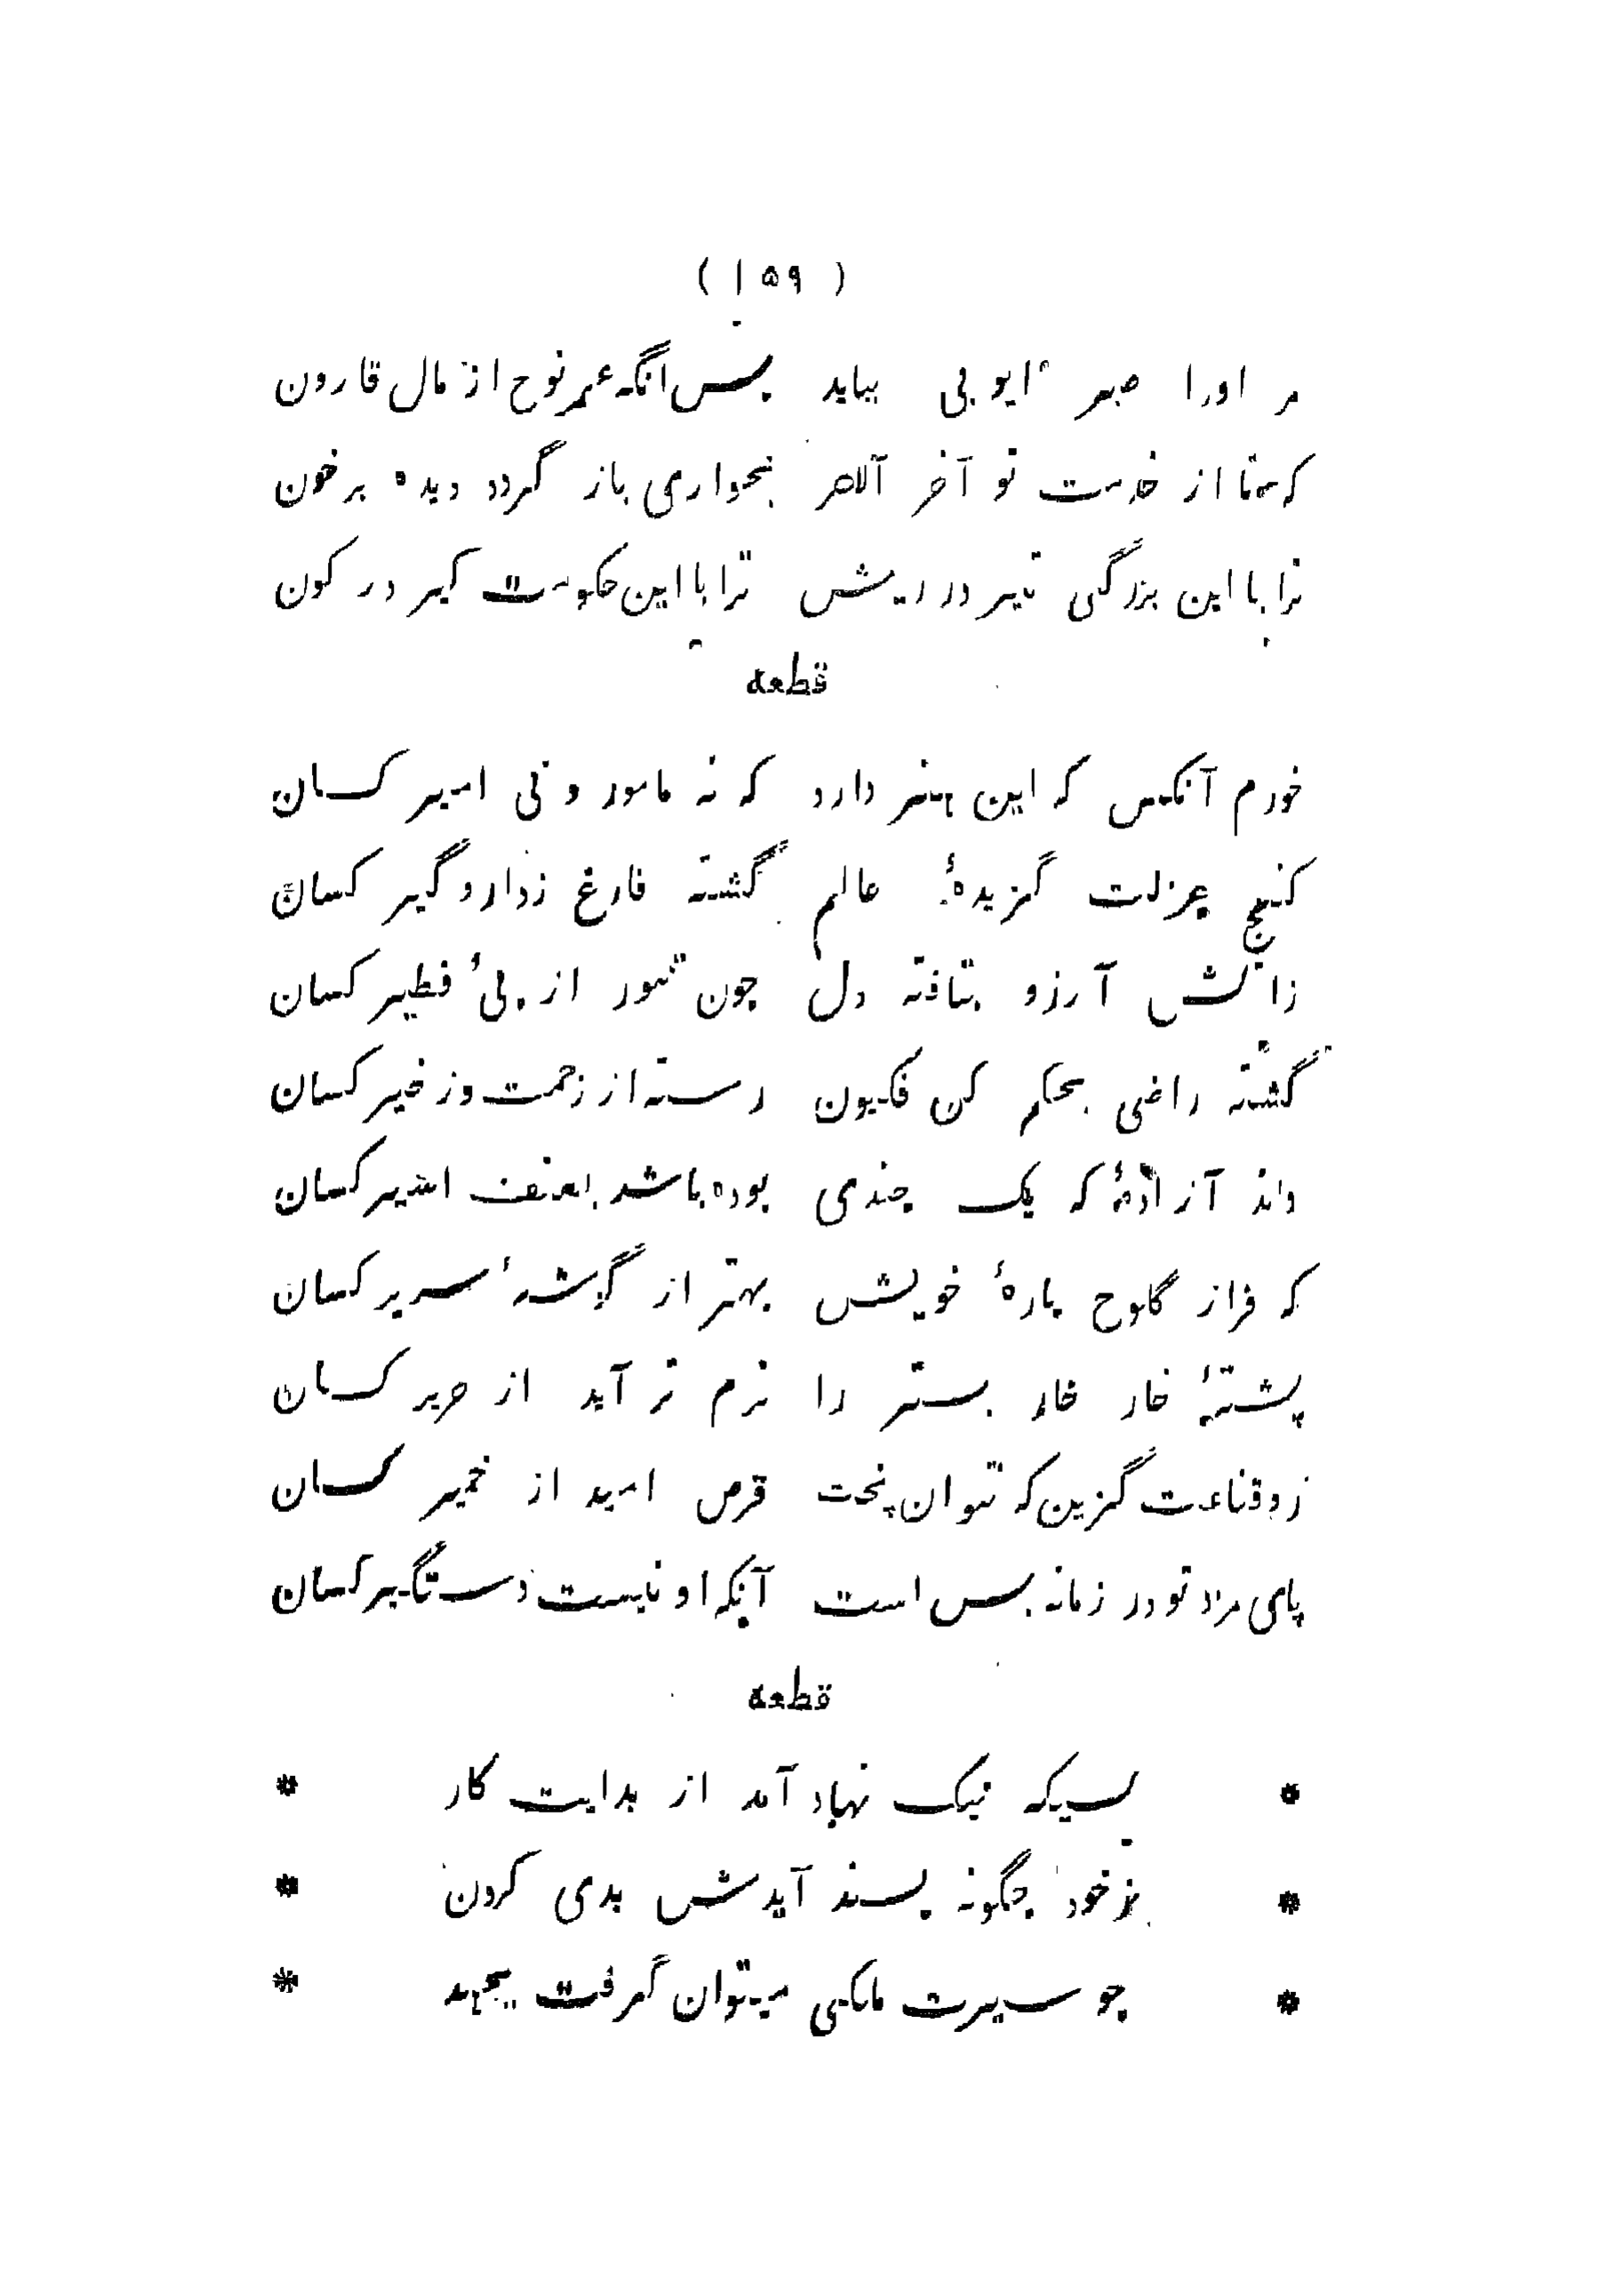 ( ۱۵۹ )
مر اورا صبر ایوبی بباید پس انگه عمر نوح از مال قارون
که تا از خدمت تو آخر الامر بخواری باز گردد دیده پر خون
ترا با این بزرگی تیر در ریش ترا با این حکومت کیر در کون
قطعه
خورم آنکس که این هنر دارد که نه مامور و نی امیر کسان
کنج عزلت گزیدهٔ عالم گشته فارغ ز دار و گیر کسان
زاتش آرزو بتافته دل چون تنور از پیٔ فطیر کسان
گشته راضی بحکم کن فکیون رسته از زحمت وز خیر کسان
داند آزادهٔ که یک چندی بوده باشد بعنف اسیر کسان
که فراز کلوخ پارهٔ خویش بهتر از گوشهٔ سریر کسان
پشتهٔ خار خار بستر را نرم تر آید از حریر کسان
رو قناعت گزین که نتوان پخت قرص امید از خمیر کسان
پای مرد تو در زمانه بس است آنکه او نیست دستگیر کسان
قطعه
* کسیکه نیک نهاد آمد از بدایت کار *
* ز خود چگونه پسند آیدش بدی کردن *
* چو سیرت ملکی میتوان گرفت بجهد *